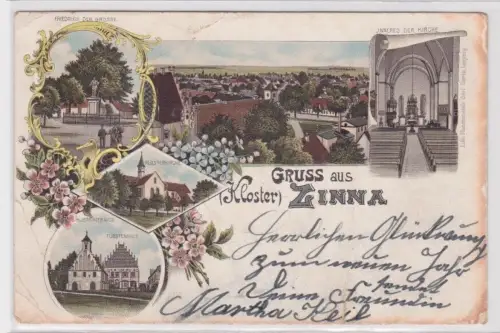 FRIEDRICH DER GROSSE.
INNERES DER KIRCHE
KLOSTERKIRCHE
FÜRSTENHAUS
GRUSS aus
(Kloster) ZINNA
Herrlichen Glückwunsch
zum neuen Jahr
sendet
Deine Freundin
Martha Keil